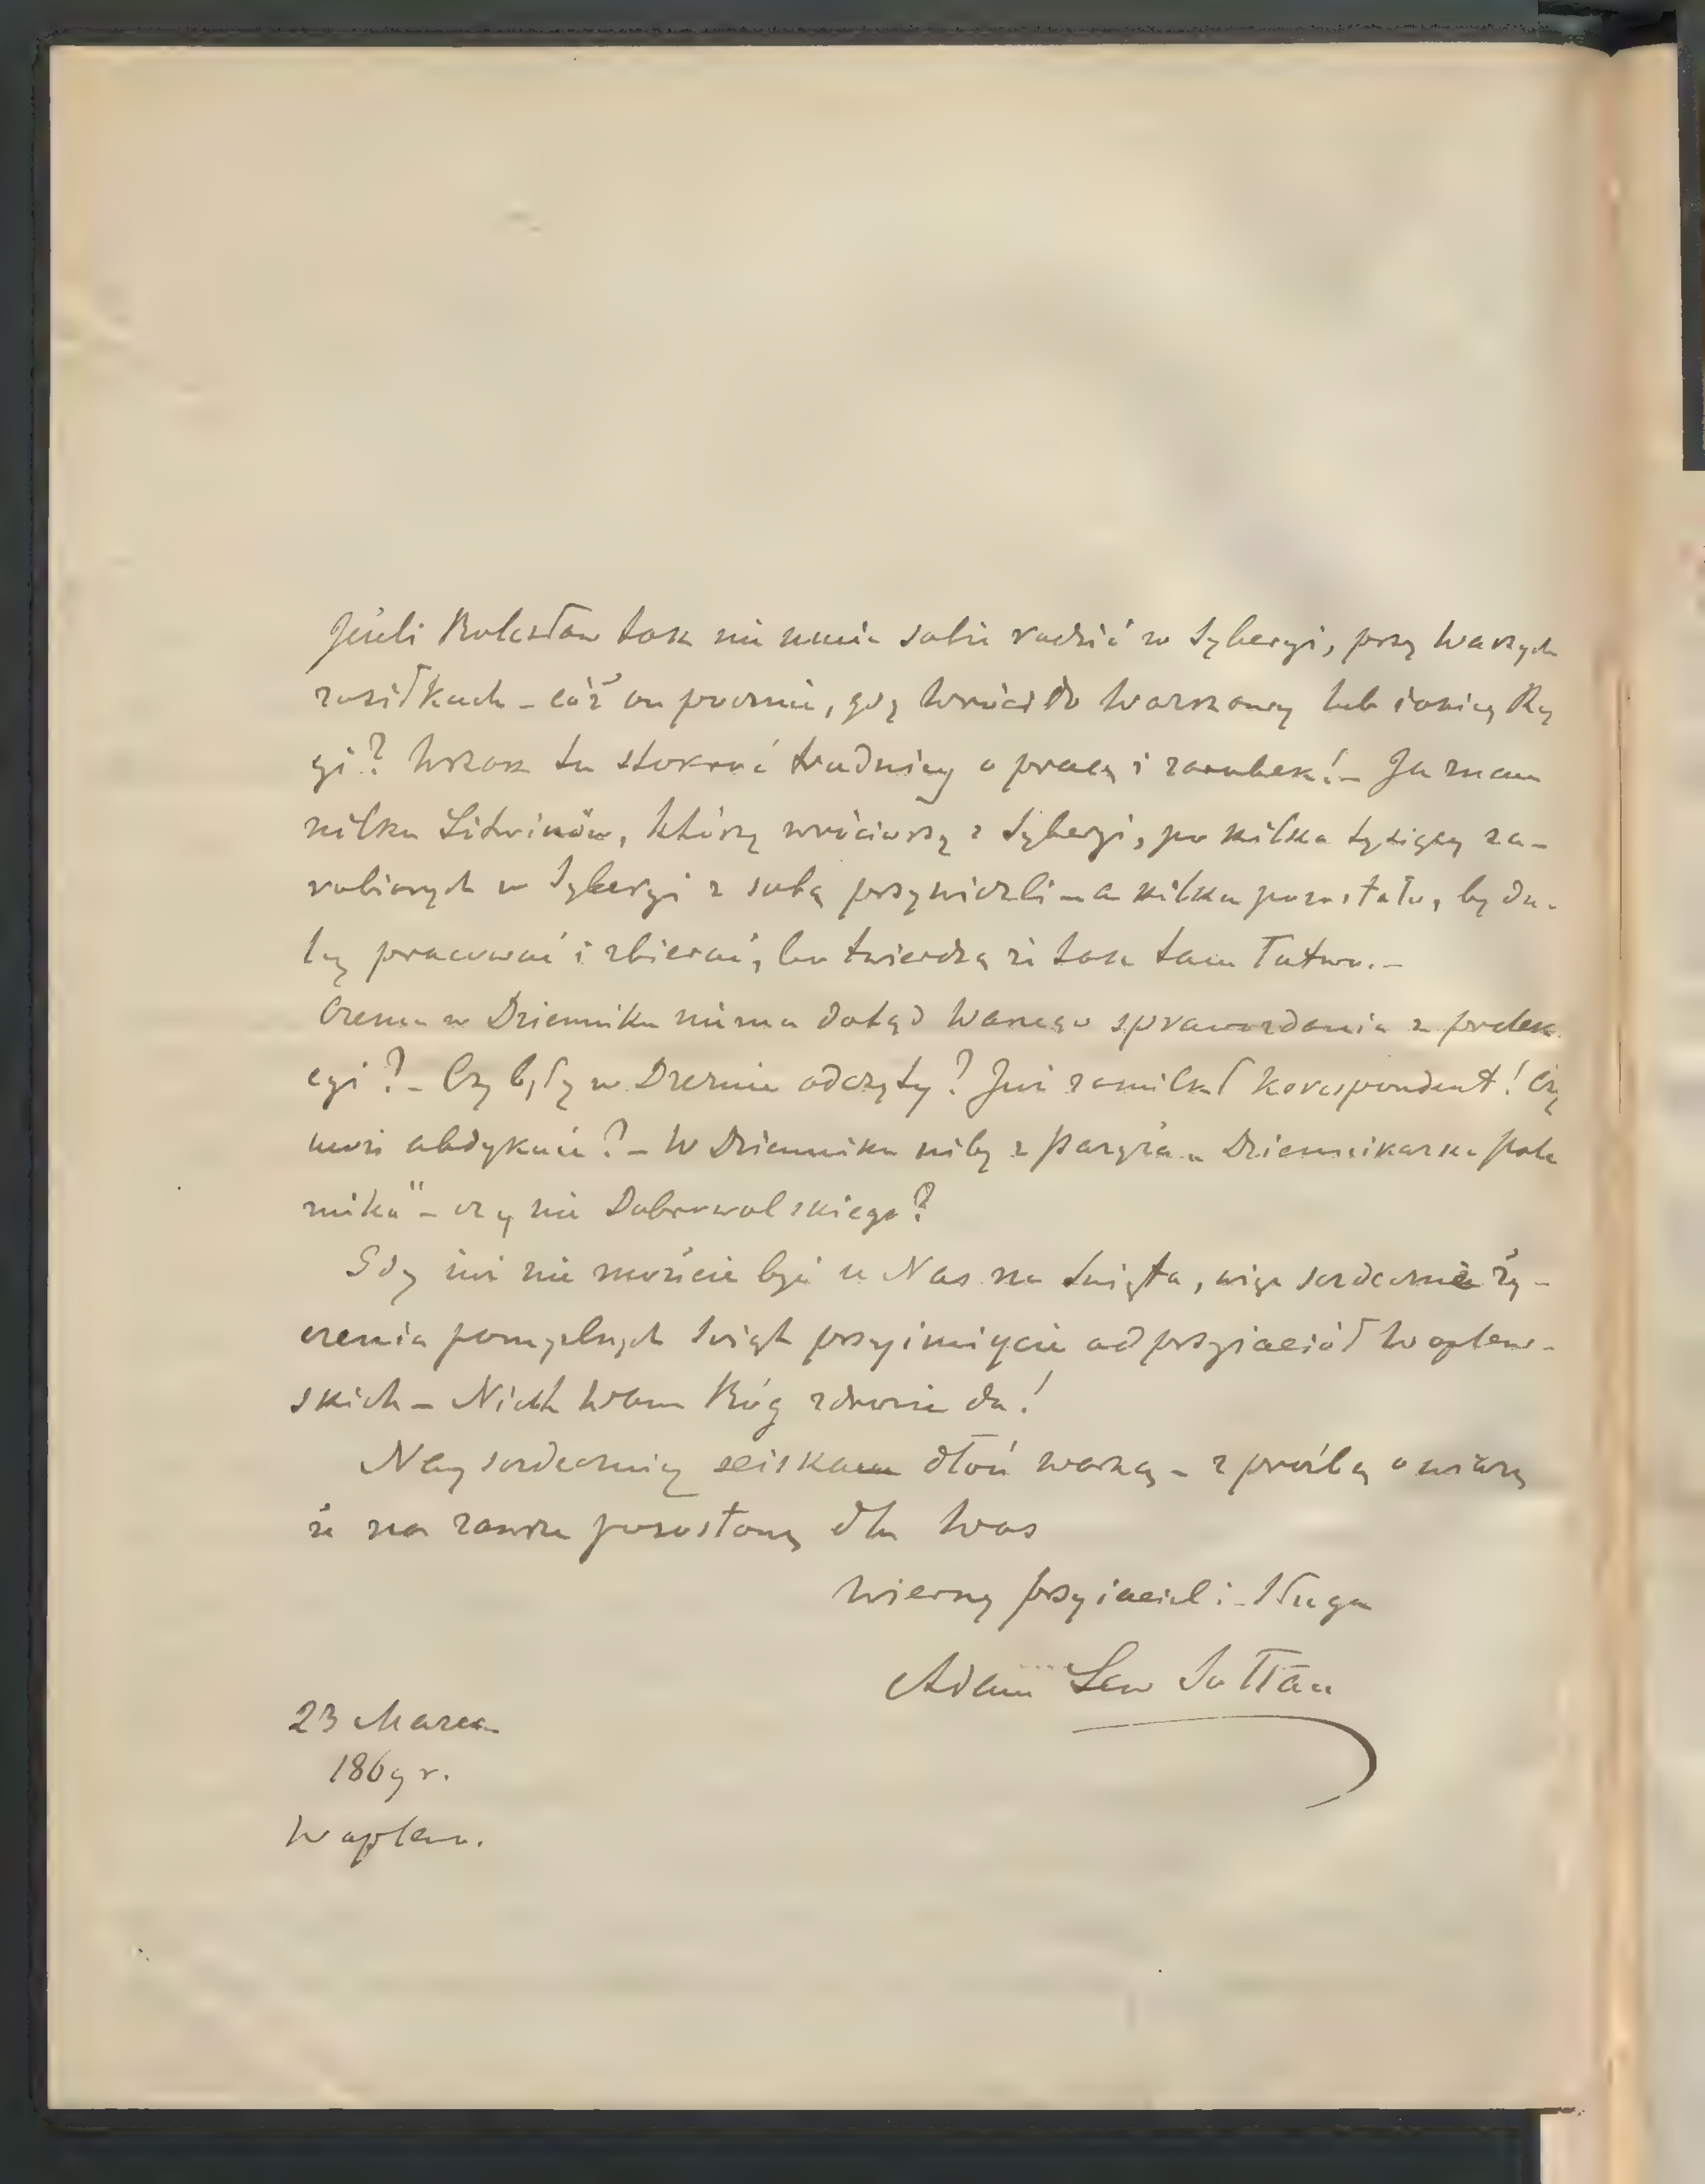 Jeżeli Bolesław tak nie umie sobie radzić w Syberyi, przy Waszych
zasiłkach – cóż on pocznie, gdy wróci do Warszawy lub
gi? Wszak tu stokroć trudniey o pracę i zarobek! – Ja znam
kilku Litwinów, którzy wróciwszy z Syberyi, po kilka tysięcy za-
robionych w Syberyi z sobą przywieźli – a kilku pozostało, by da-
ley pracować i zbierać, bo twierdzą że tak tam łatwo. –
Czemu w Dzienniku niema dotąd Waszego sprawozdania z prelek
cyi? – Czy były w Dreznie odczyty? Już zamilkł korespondent! Czy
może abdykuie? – W Dzienniku niby z Paryża „Dziennikarska pole
mika" – czy nie Dobrowolskiego?
Gdy już nie możecie być u Nas na Święta, więc serdeczne ży-
czenia pomyślnych Świąt przyimiycie od przyiaciół Waplew-
skich – Niech Wam Bóg zdrowie da!
Nayserdeczniey ściskam dłoń waszą – z prośbą o wiarę
że na zawsze pozostanę dla Was
Wierny przyiaciel i Sługa
Adam Lew Sołtan
23 Marca
1869 r.
Waplew.